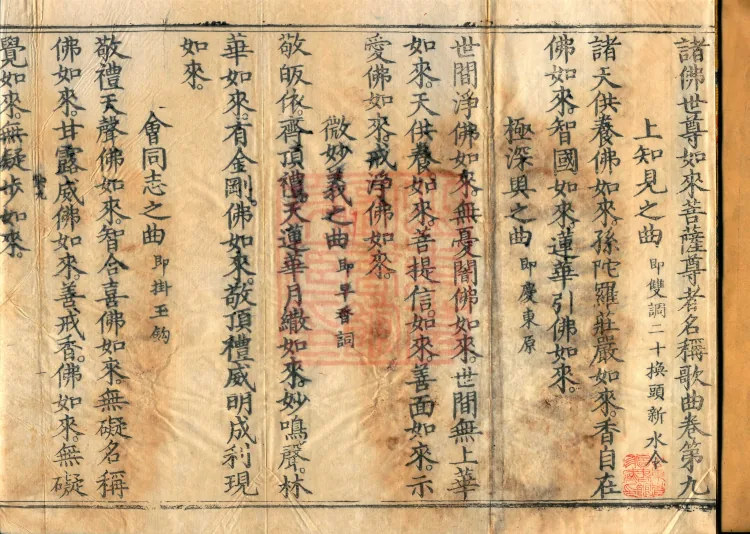 諸佛世尊如來菩薩尊者名稱歌曲卷第九
上知見之曲 即雙調二十換頭新水令
諸天供養佛如來。孫陀羅莊嚴如來。香自在
佛如來。智國如來。蓮華引佛如來。
極深奧之曲 即慶東原
世間淨佛如來。無憂闇佛如來。世間無上華
如來。天供養如來。菩提信。如來。善面如來。示
愛佛如來。戒淨佛如來。
微妙義之曲 即早香詞
敬皈依。齊頂禮。天蓮華月繖如來。妙鳴聲。林
華如來。有金剛。佛如來。敬頂禮威明成利現
如來。
會同志之曲 即掛玉鈎
敬禮天聲佛如來。智合喜佛如來。無礙名稱
佛如來。甘露威佛如來。善戒香。佛如來。無礙
覺如來。無疑步如來。